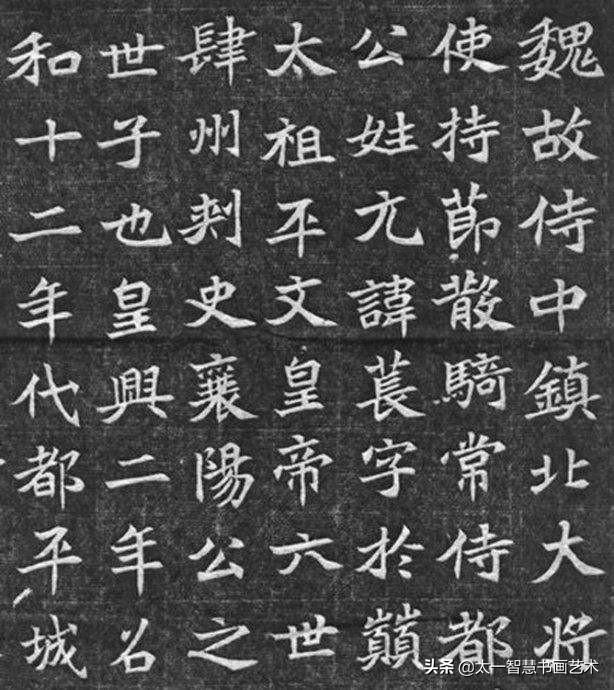 魏故侍中鎮北大將
使持莭散騎常侍都
公姓元諱萇字於巔
太祖平文皇帝六世
肆州刾史襄陽公之
世子也皇興二年召
和十二年代都平城
头条 @太一智慧书画艺术